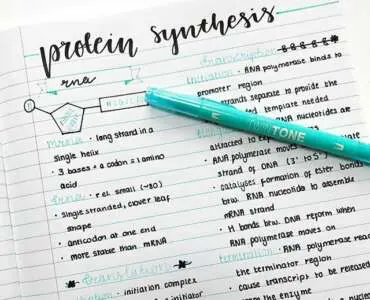 protein synthesis
rna
mrna • long strand in a
single helix
• 3 bases = a codon = 1 amino
acid
trna • rel. small (~80)
• single stranded, clover leaf
shape
• anticodon at one end
• more stable than mRNA
translation
initiation complex
initiator
transcription
initiation • RNA polymerase binds to
promoter region
strands separate to provide the
template needed
RNA nucleotides are
attracted to
RNA polymerase moves
strand of DNA (3' to 5')
• catalyses formation of ester bonds
btw. RNA nucleotides to assemble
mRNA strand
• H bonds btw. DNA reform when
RNA polymerase moves on
• RNA polymerase reac
the terminator region
• cause transcript to be released
the enzyme
TONE